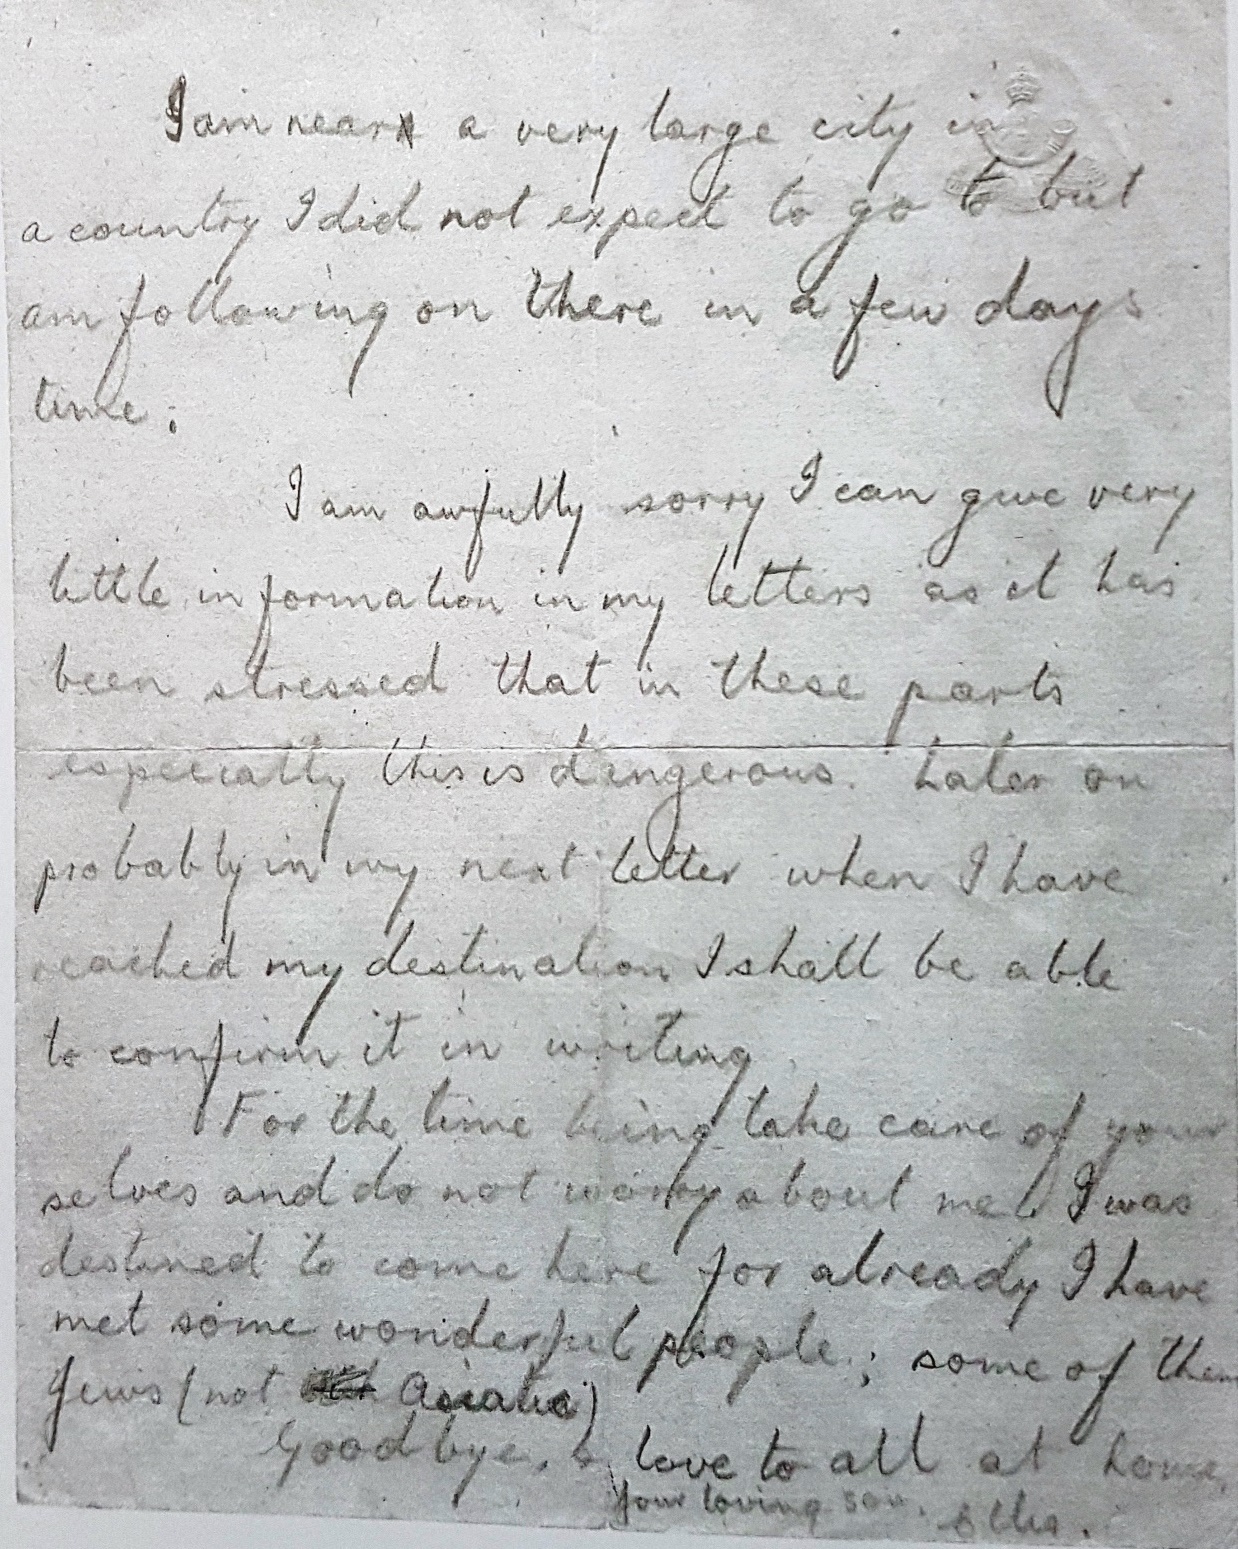 I am near a very large city in
a country I did not expect to go to but
am following on there in a few days
time.
I am awfully sorry I can give very
little information in my letters as it has
been stressed that in these parts
especially this is dangerous. Later on
probably in my next letter when I have
reached my destination I shall be able
to confirm it in writing.
For the time being take care of your
selves and do not worry about me. I was
destined to come here for already I have
met some wonderful people; some of them
Jews (not Asiatic)
Goodbye, love to all at home,
Your loving son.